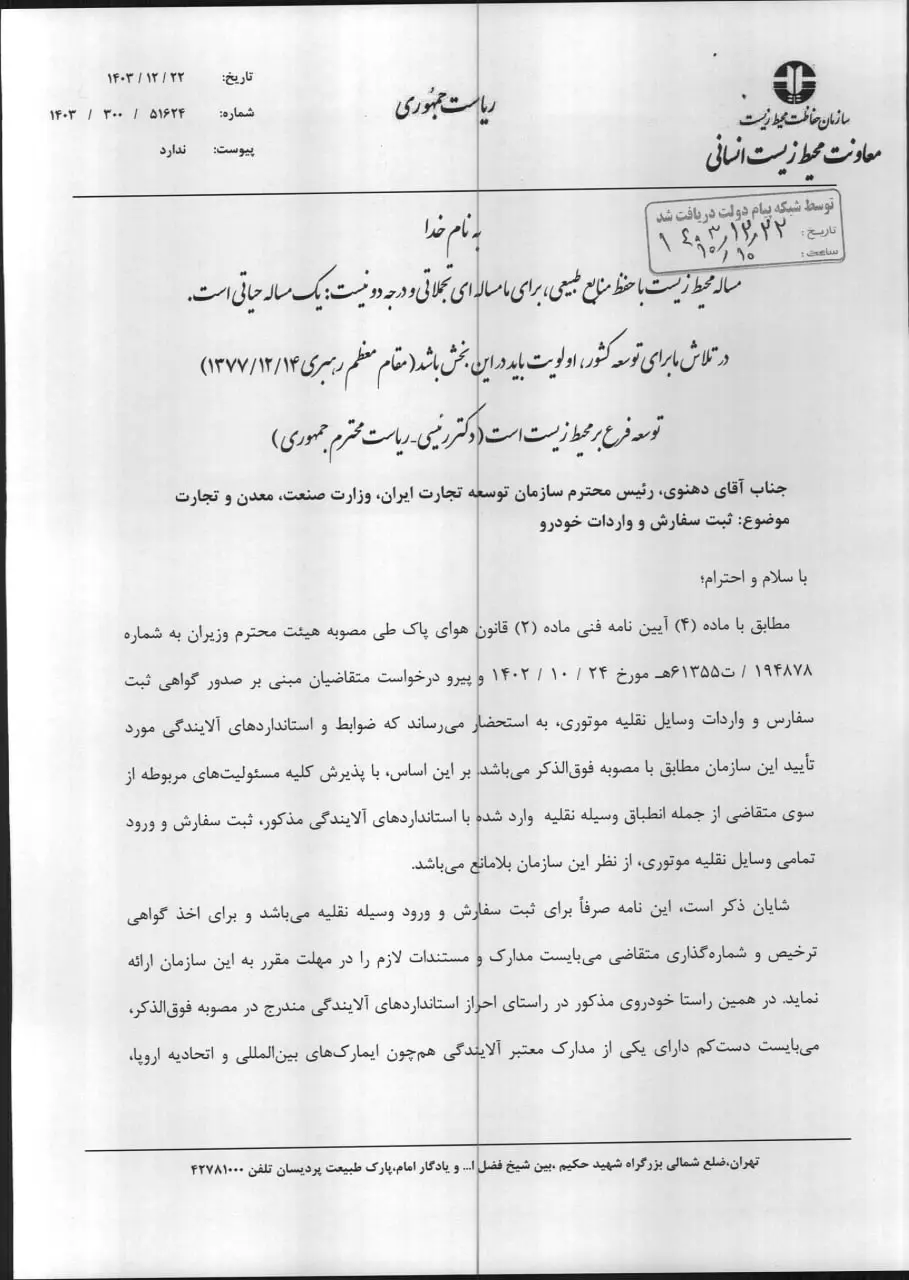 تاریخ: ۱۴۰۳/۱۲/۲۲
شماره: ۱۴۰۳ / ۳۰۰ / ۵۱۶۲۴
پیوست: ندارد
ریاست جمهوری
سازمان حفاظت محیط زیست
معاونت محیط زیست انسانی
توسط شبکه پیام دولت دریافت شد
تاریخ: ۱۴۰۳/۱۲/۲۲
ساعت: ۱۰/۱۰
به نام خدا
مساله محیط زیست با حفظ منابع طبیعی، برای ما مساله ای تجملاتی و درجه دو نیست: یک مساله حیاتی است.
در تلاش ما برای توسعه کشور، اولویت باید در این بخش باشد (مقام معظم رهبری ۱۳۷۷/۱۲/۱۴)
توسعه فرع بر محیط زیست است (دکتر رئیسی-ریاست محترم جمهوری)
جناب آقای دهنوی، رئیس محترم سازمان توسعه تجارت ایران، وزارت صنعت، معدن و تجارت
موضوع: ثبت سفارش و واردات خودرو
با سلام و احترام؛
مطابق با ماده (۴) آیین نامه فنی ماده (۲) قانون هوای پاک طی مصوبه هیئت محترم وزیران به شماره
۱۹۴۸۷۸ / ت۶۱۳۵۵هـ مورخ ۲۴ / ۱۰ / ۱۴۰۲ و پیرو درخواست متقاضیان مبنی بر صدور گواهی ثبت
سفارس و واردات وسایل نقلیه موتوری، به استحضار می‌رساند که ضوابط و استانداردهای آلایندگی مورد
تأیید این سازمان مطابق با مصوبه فوق‌الذکر می‌باشد. بر این اساس، با پذیرش کلیه مسئولیت‌های مربوطه از
سوی متقاضی از جمله انطباق وسیله نقلیه وارد شده با استانداردهای آلایندگی مذکور، ثبت سفارش و ورود
تمامی وسایل نقلیه موتوری، از نظر این سازمان بلامانع می‌باشد.
شایان ذکر است، این نامه صرفاً برای ثبت سفارش و ورود وسیله نقلیه می‌باشد و برای اخذ گواهی
ترخیص و شماره‌گذاری متقاضی می‌بایست مدارک و مستندات لازم را در مهلت مقرر به این سازمان ارائه
نماید. در همین راستا خودروی مذکور در راستای احراز استانداردهای آلایندگی مندرج در مصوبه فوق‌الذکر،
می‌بایست دست‌کم دارای یکی از مدارک معتبر آلایندگی هم‌چون ایمارک‌های بین‌المللی و اتحادیه اروپا،
تهران،ضلع شمالی بزرگراه شهید حکیم ،بین شیخ فضل ا... و یادگار امام،پارک طبیعت پردیسان تلفن ۴۲۷۸۱۰۰۰